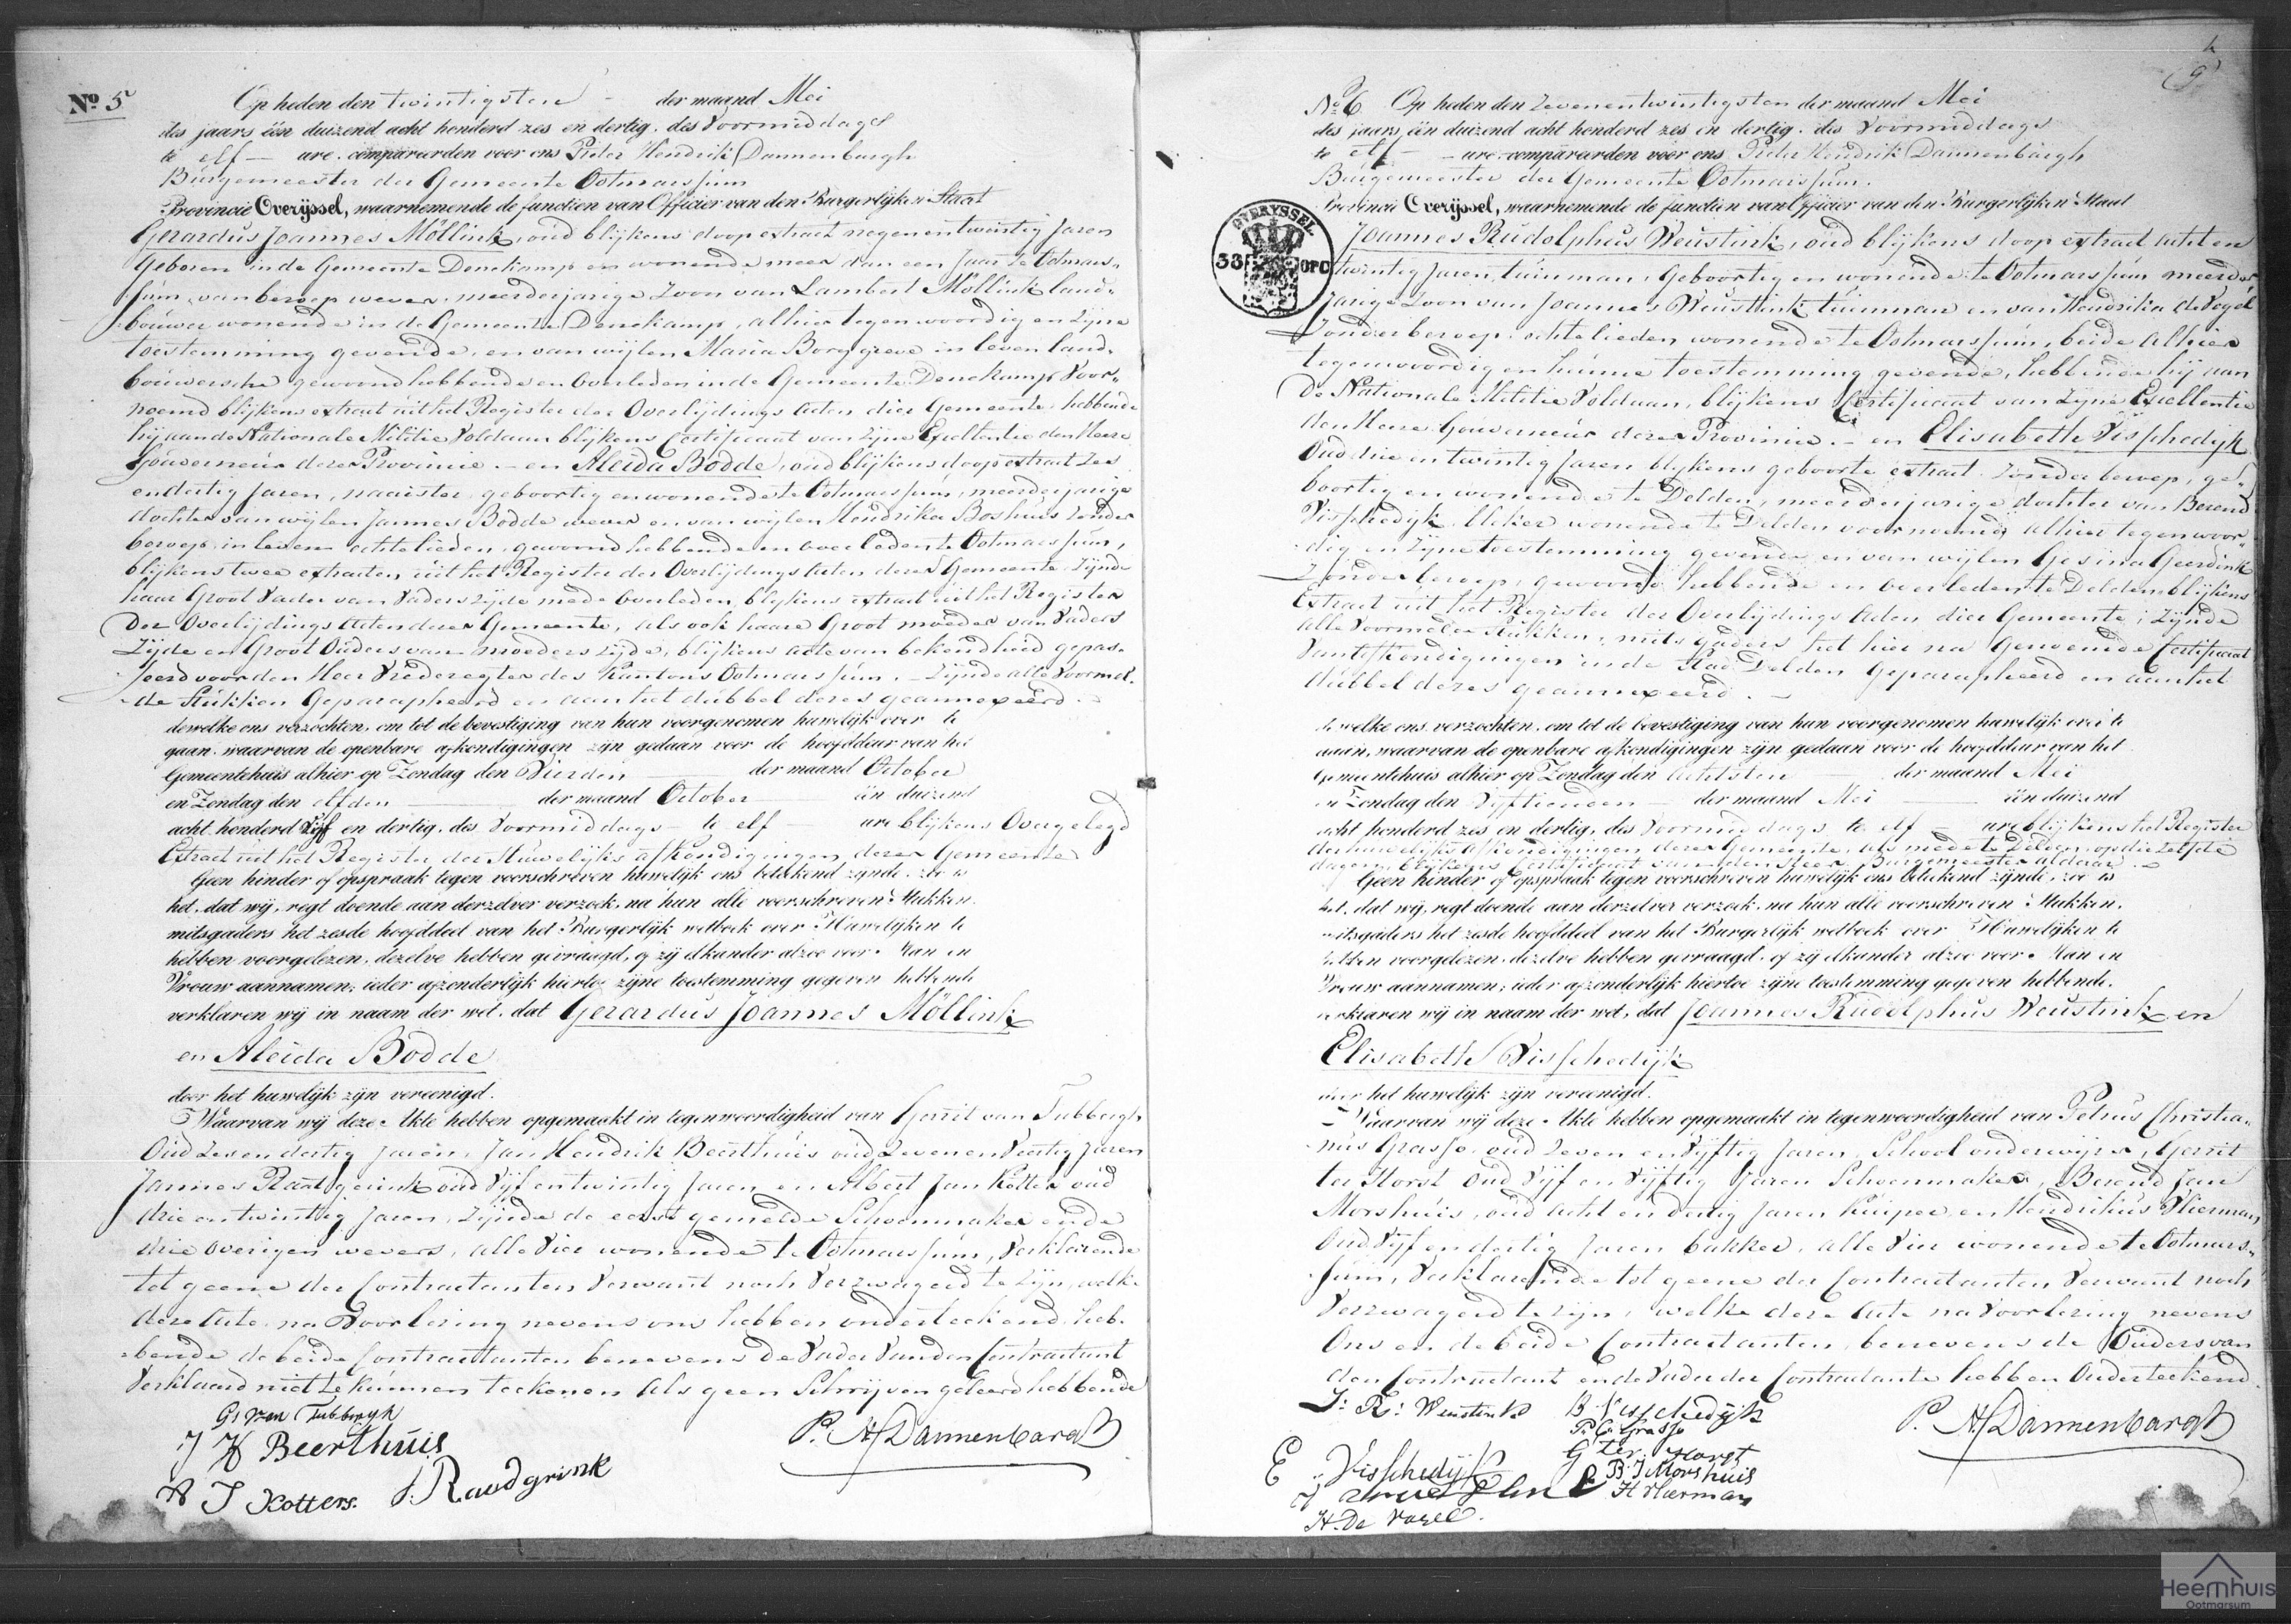 No 5
Op heden den twintigsten - der maand Mei
des jaars één duizend acht honderd zes en dertig, des Voormiddags
te elf - ure, compareerden voor ons Pieter Hendrik Dannenbargh
Burgemeester der Gemeente Ootmarssum
Provincie Overijssel, waarnemende de functien van Officier van den Burgerlijken Staat
Gerardus Joannes Möllink, oud blijkens doopextract negenentwintig Jaren
Geboren in de Gemeente Denekamp en wonende meer dan een Jaar te Ootmars-
sum, van beroep wever, meerderjarige Zoon van Lambert Möllink land-
bouwer wonende in de Gemeente Denekamp, alhier tegenwoordig en zijne
toestemming gevende, en van wijlen Maria Borggreve in leven land-
bouwersche gewoond hebbende en Overleden in de Gemeente Denekamp Voor-
noemd blijkens extract uit het Register der Overlijdings Acten dier Gemeente, hebbende
hij aan de Nationale Militie Voldaan blijkens Certificaat van Zijne Excellentie den Heere
Gouverneur dezer Provincie. - en Aleida Bodde, oud blijkens doopextract zes
en dertig Jaren, naaister, geboortig en wonende te Ootmarssum, meerderjarige
dochter van wijlen Jannes Bodde wever en van wijlen Hendrika Boshuis zonder
beroep in leven echtelieden, gewoond hebbende en overleden te Ootmarssum,
blijkens twee extracten uit het Register der Overlijdings Acten dezer Gemeente, Zijnde
haar Groot Vader van Vaders Zijde mede Overleden, blijkens extract uit het Register
der Overlijdings Acten dezer Gemeente, als ook haare Groot moeder van Vaders
Zijde en Groot Ouders van moeders zijde, blijkens acte van bekendheid gepas-
seerd voor den Heer Vrederegter des Kantons Ootmarssum. - Zijnde alle Voormel-
de Stukken Geparapheerd en aan het dubbel dezes geannexeerd. -
dewelke ons verzochten, om tot de bevestiging van hun voorgenomen huwelijk over te
gaan, waarvan de openbare afkondigingen zijn gedaan voor de hoofddeur van het
Gemeentehuis alhier op Zondag den Vierden der maand October
en Zondag den elfden der maand October één duizend
acht honderd Vijf en dertig, des Voormiddags te elf ure blijkens Overgelegd
Extract uit het Register der Huwelijks afkondigingen dezer Gemeente
Geen hinder of opspraak tegen voorschreven huwelijk ons betekend zijnde, zoo is
het, dat wij, regt doende aan derzelver verzoek, na hun alle voorschreven Stukken,
mitsgaders het zesde hoofddeel van het Burgerlijk wetboek over Huwelijken te
hebben voorgelezen, dezelve hebben gevraagd, of zij elkander alzoo voor Man en
Vrouw aannamen; ieder afzonderlijk hiertoe zijne toestemming gegeven hebbende
verklaren wij in naam der wet, dat Gerardus Joannes Möllink
en Aleida Bodde
door het huwelijk zijn vereenigd.
Waarvan wij deze Akte hebben opgemaakt in tegenwoordigheid van Gerrit van Tubbergh
Oud Zes en dertig Jaren, Jan Hendrik Beerthuis oud Zeven en Veertig Jaren
Jannes Raatgerink oud Vijf en twintig Jaren en Albert Jan Kotters oud
drie en twintig Jaren, Zijnde de eerst gemelde Schoenmaker en de
drie Overigen wevers, alle Vier wonende te Ootmarssum, Verklarende
tot geene der Contractanten Verwant noch Verzwagerd te Zijn, welke
deze Acte na Voorlezing nevens ons hebben onderteekend, heb-
bende de beide Contractanten benevens de Vader Van den Contractant
Verklaard niet te kunnen teekenen Als geen Schrijven geleerd hebbende
Gs van Tubbergh
J H Beerthuis
P. H. Dannenbargh
A J Kotters. J. Raadgrink
No 6 Op heden den Zevenentwintigsten der maand Mei
des jaars één duizend acht honderd zes en dertig, des Voormiddags
te elf - ure, compareerden voor ons Pieter Hendrik Dannenbargh
Burgemeester der Gemeente Ootmarssum.
Provincie Overijssel, waarnemende de functien van Officier van den Burgerlijken Staat
OVERYSSEL
Joannes Rudolphus Weustink, oud blijkens doop extract acht en
twintig Jaren, tuinman, Geboortig en wonende te Ootmarssum meerder
jarige Zoon van Joannes Weustink tuinman en van Hendrika de Vogel
Zonder beroep, echtelieden wonende te Ootmarssum, beide Alhier
tegenwoordig en hunne toestemming gevende, hebbende hij aan
de Nationale Militie Voldaan, blijkens Certificaat van Zijne Excellentie
den Heere Gouverneur dezer Provincie. - en Elisabeth Visschedijk
Oud drie en twintig Jaren blijkens geboorte extract, Zonder beroep, ge-
boortig en wonende te Delden, meerderjarige dochter van Berend
Visschedijk bleker wonende te Delden voornoemd alhier tegenwoor-
dig en Zijne toestemming gevende en van wijlen Gesina Geerdink
Zonder beroep, gewoond hebbende en overleden te Delden blijkens
Extract uit het Register der Overlijdings Acten dier Gemeente; Zijnde
alle Voormelde Stukken, mitsgaders het hier na Genoemde Certificaat
Van afkondigingen in de Stad Delden Geparapheerd en aan het
dubbel dezes geannexeerd. -
dewelke ons verzochten, om tot de bevestiging van hun voorgenomen huwelijk over te
gaan, waarvan de openbare afkondigingen zijn gedaan voor de hoofddeur van het
Gemeentehuis alhier op Zondag den achtsten der maand Mei
en Zondag den Vijftienden der maand Mei één duizend
acht honderd zes en dertig, des Voormiddags te elf ure blijkens het Register
der huwelijks afkondigingen dezer Gemeente, als mede te Delden, op die zelfde
dagen, blijkens Certificaat van den Heer Burgemeester aldaar. -
Geen hinder of opspraak tegen voorschreven huwelijk ons betekend zijnde, zoo is
het, dat wij, regt doende aan derzelver verzoek, na hun alle voorschreven Stukken,
mitsgaders het zesde hoofddeel van het Burgerlijk wetboek over Huwelijken te
hebben voorgelezen, dezelve hebben gevraagd, of zij elkander alzoo voor Man en
Vrouw aannamen; ieder afzonderlijk hiertoe zijne toestemming gegeven hebbende,
verklaren wij in naam der wet, dat Joannes Rudolphus Weustink en
Elisabeth Visschedijk
door het huwelijk zijn vereenigd.
Waarvan wij deze Akte hebben opgemaakt in tegenwoordigheid van Petrus Christia-
nus Grasse, oud Zeven en Vijftig Jaren, School onderwijzer, Gerrit
ter Horst Oud Vijf en Vijftig Jaren Schoenmaker, Berend Jan
Morshuis, oud Acht en dertig Jaren Kuiper, en Hendrikus Vlierman
Oud Vijf en dertig Jaren bakker, alle Vier wonende te Ootmars-
sum, Verklarende tot geene der Contractanten Verwant noch
Verzwagerd te zijn, welke deze Acte na Voorlezing nevens
Ons en de beide Contractanten, benevens de Ouders van
den Contractant en de Vader der Contractante hebben Onderteekend.
J. R. Weustink B Visschedijk
P. C. Grasse
P. H. Dannenbargh
G ter Horst
E Visschedijk
B. J Morshuis
H Vlierman
H. De Vogel.
Heemhuis
Ootmarsum